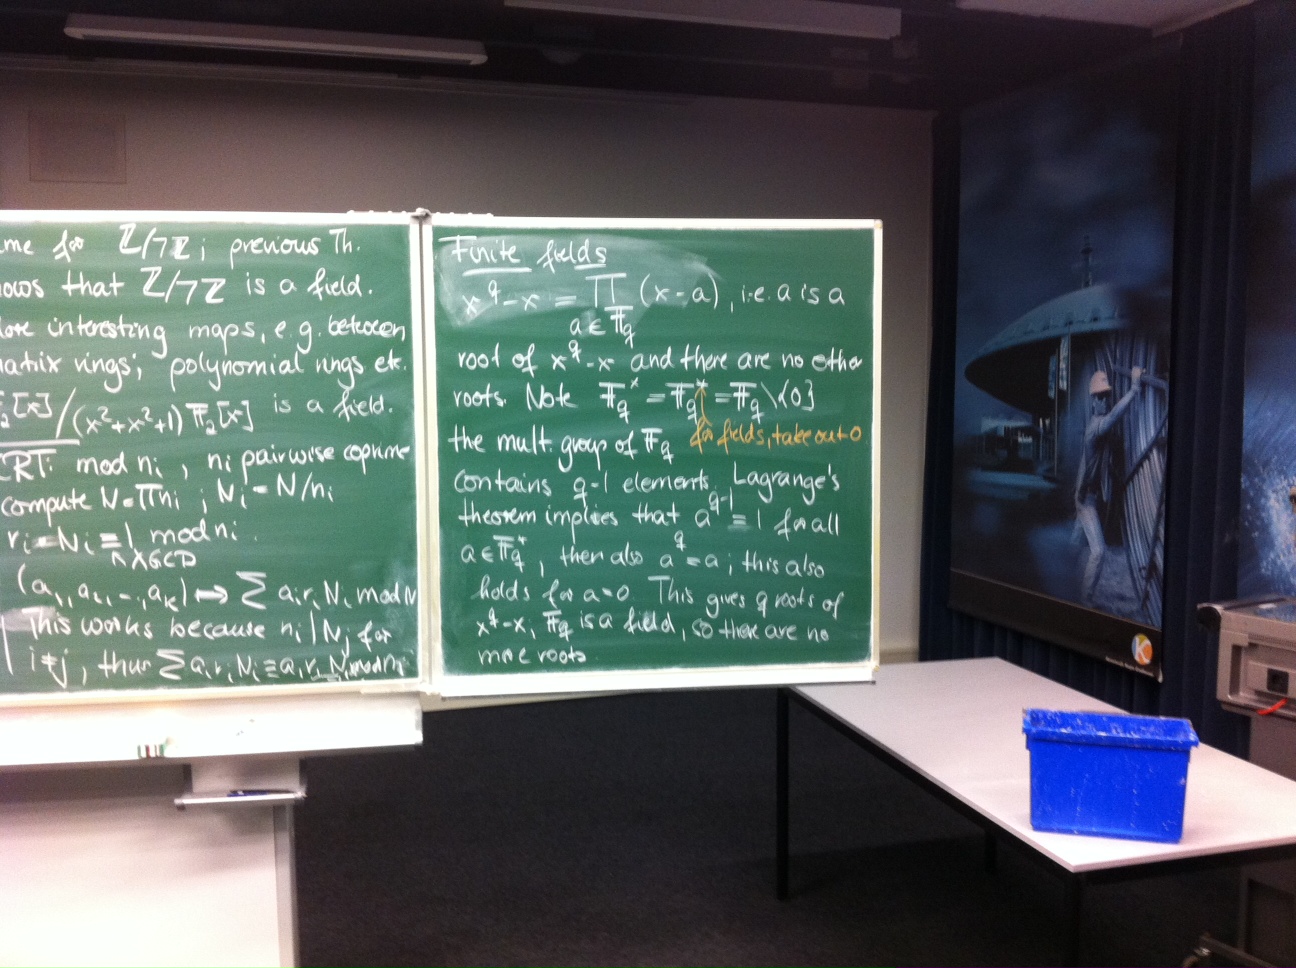 me for ℤ/7ℤ; previous Th.
ows that ℤ/7ℤ is a field.
ore interesting maps, e.g. between
atrix rings; polynomial rings etc.
𝔽₂[x]/(x²+x²+1)𝔽₂[x] is a field.
CRT: mod nᵢ, nᵢ pairwise coprime
compute N=Πnᵢ; Nᵢ=N/nᵢ
rᵢ=Nᵢ≡1 mod nᵢ.
↖XGCD
(a₁,a₂,...,aₖ)↦∑ aᵢrᵢNᵢ mod N
This works because nᵢ|Nⱼ for
i≠j, thus ∑aᵢrᵢNᵢ≡aᵢrᵢNᵢ mod nᵢ
Finite fields
x^q-x = ∏ (x-a), i.e. a is a
a∈𝔽_q
root of x^q-x and there are no other
roots. Note 𝔽_q^× = 𝔽_q^* = 𝔽_q\{0}
the mult. group of 𝔽_q for fields, take out 0
contains q-1 elements. Lagrange's
theorem implies that a^{q-1}=1 for all
a∈𝔽_q^*, then also a^q=a; this also
holds for a=0. This gives q roots of
x^q-x, 𝔽_q is a field, so there are no
more roots.
K